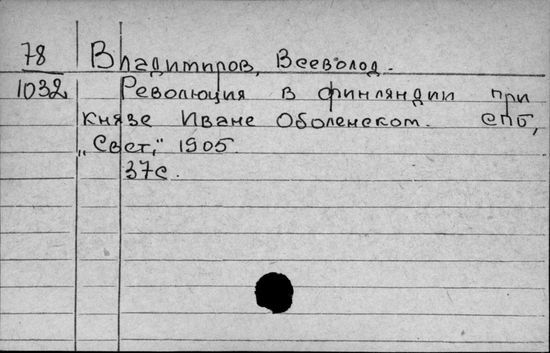 78 Владимиров, Всеволод.
1032 Революция в Финляндии при
князе Иване Оболенском. СПБ,
„Свет," 1905
37с.